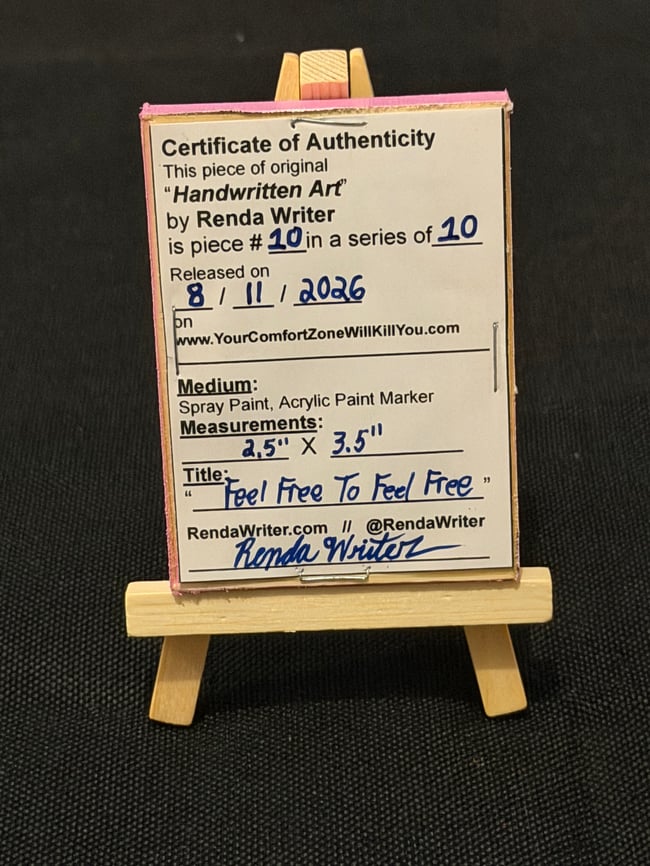 Certificate of Authenticity
This piece of original
“Handwritten Art”
by Renda Writer
is piece # 10 in a series of 10
Released on
8 / 11 / 2026
on
www.YourComfortZoneWillKillYou.com
Medium:
Spray Paint, Acrylic Paint Marker
Measurements:
2.5" X 3.5"
Title:
“ Feel Free To Feel Free ”
RendaWriter.com // @RendaWriter
Renda Writer